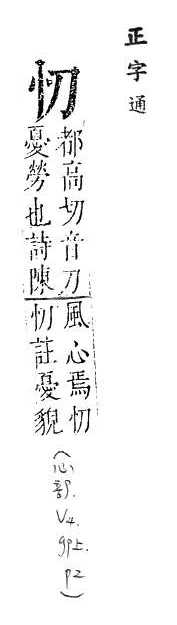 正字通
忉
都高切音刀
憂勞也詩陳
風心焉忉
忉註憂貌
(心部.
V4.
卯上.
p2)